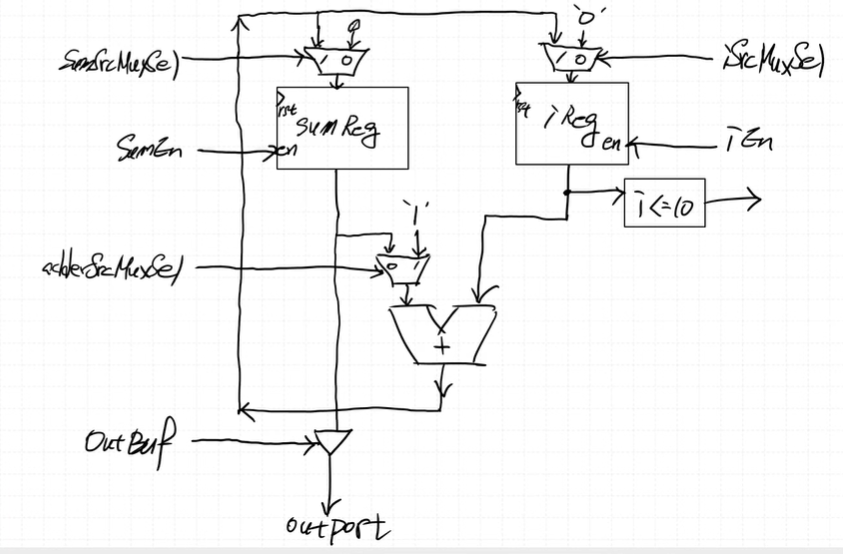 '0'
SumSrcMuxSel
1 0
1 0
iSrcMuxSel
rst
SumReg
en
SumEn
rst
iReg
en
iEn
i<=10
'1'
0 1
adderSrcMuxSel
+
OutBuf
outport